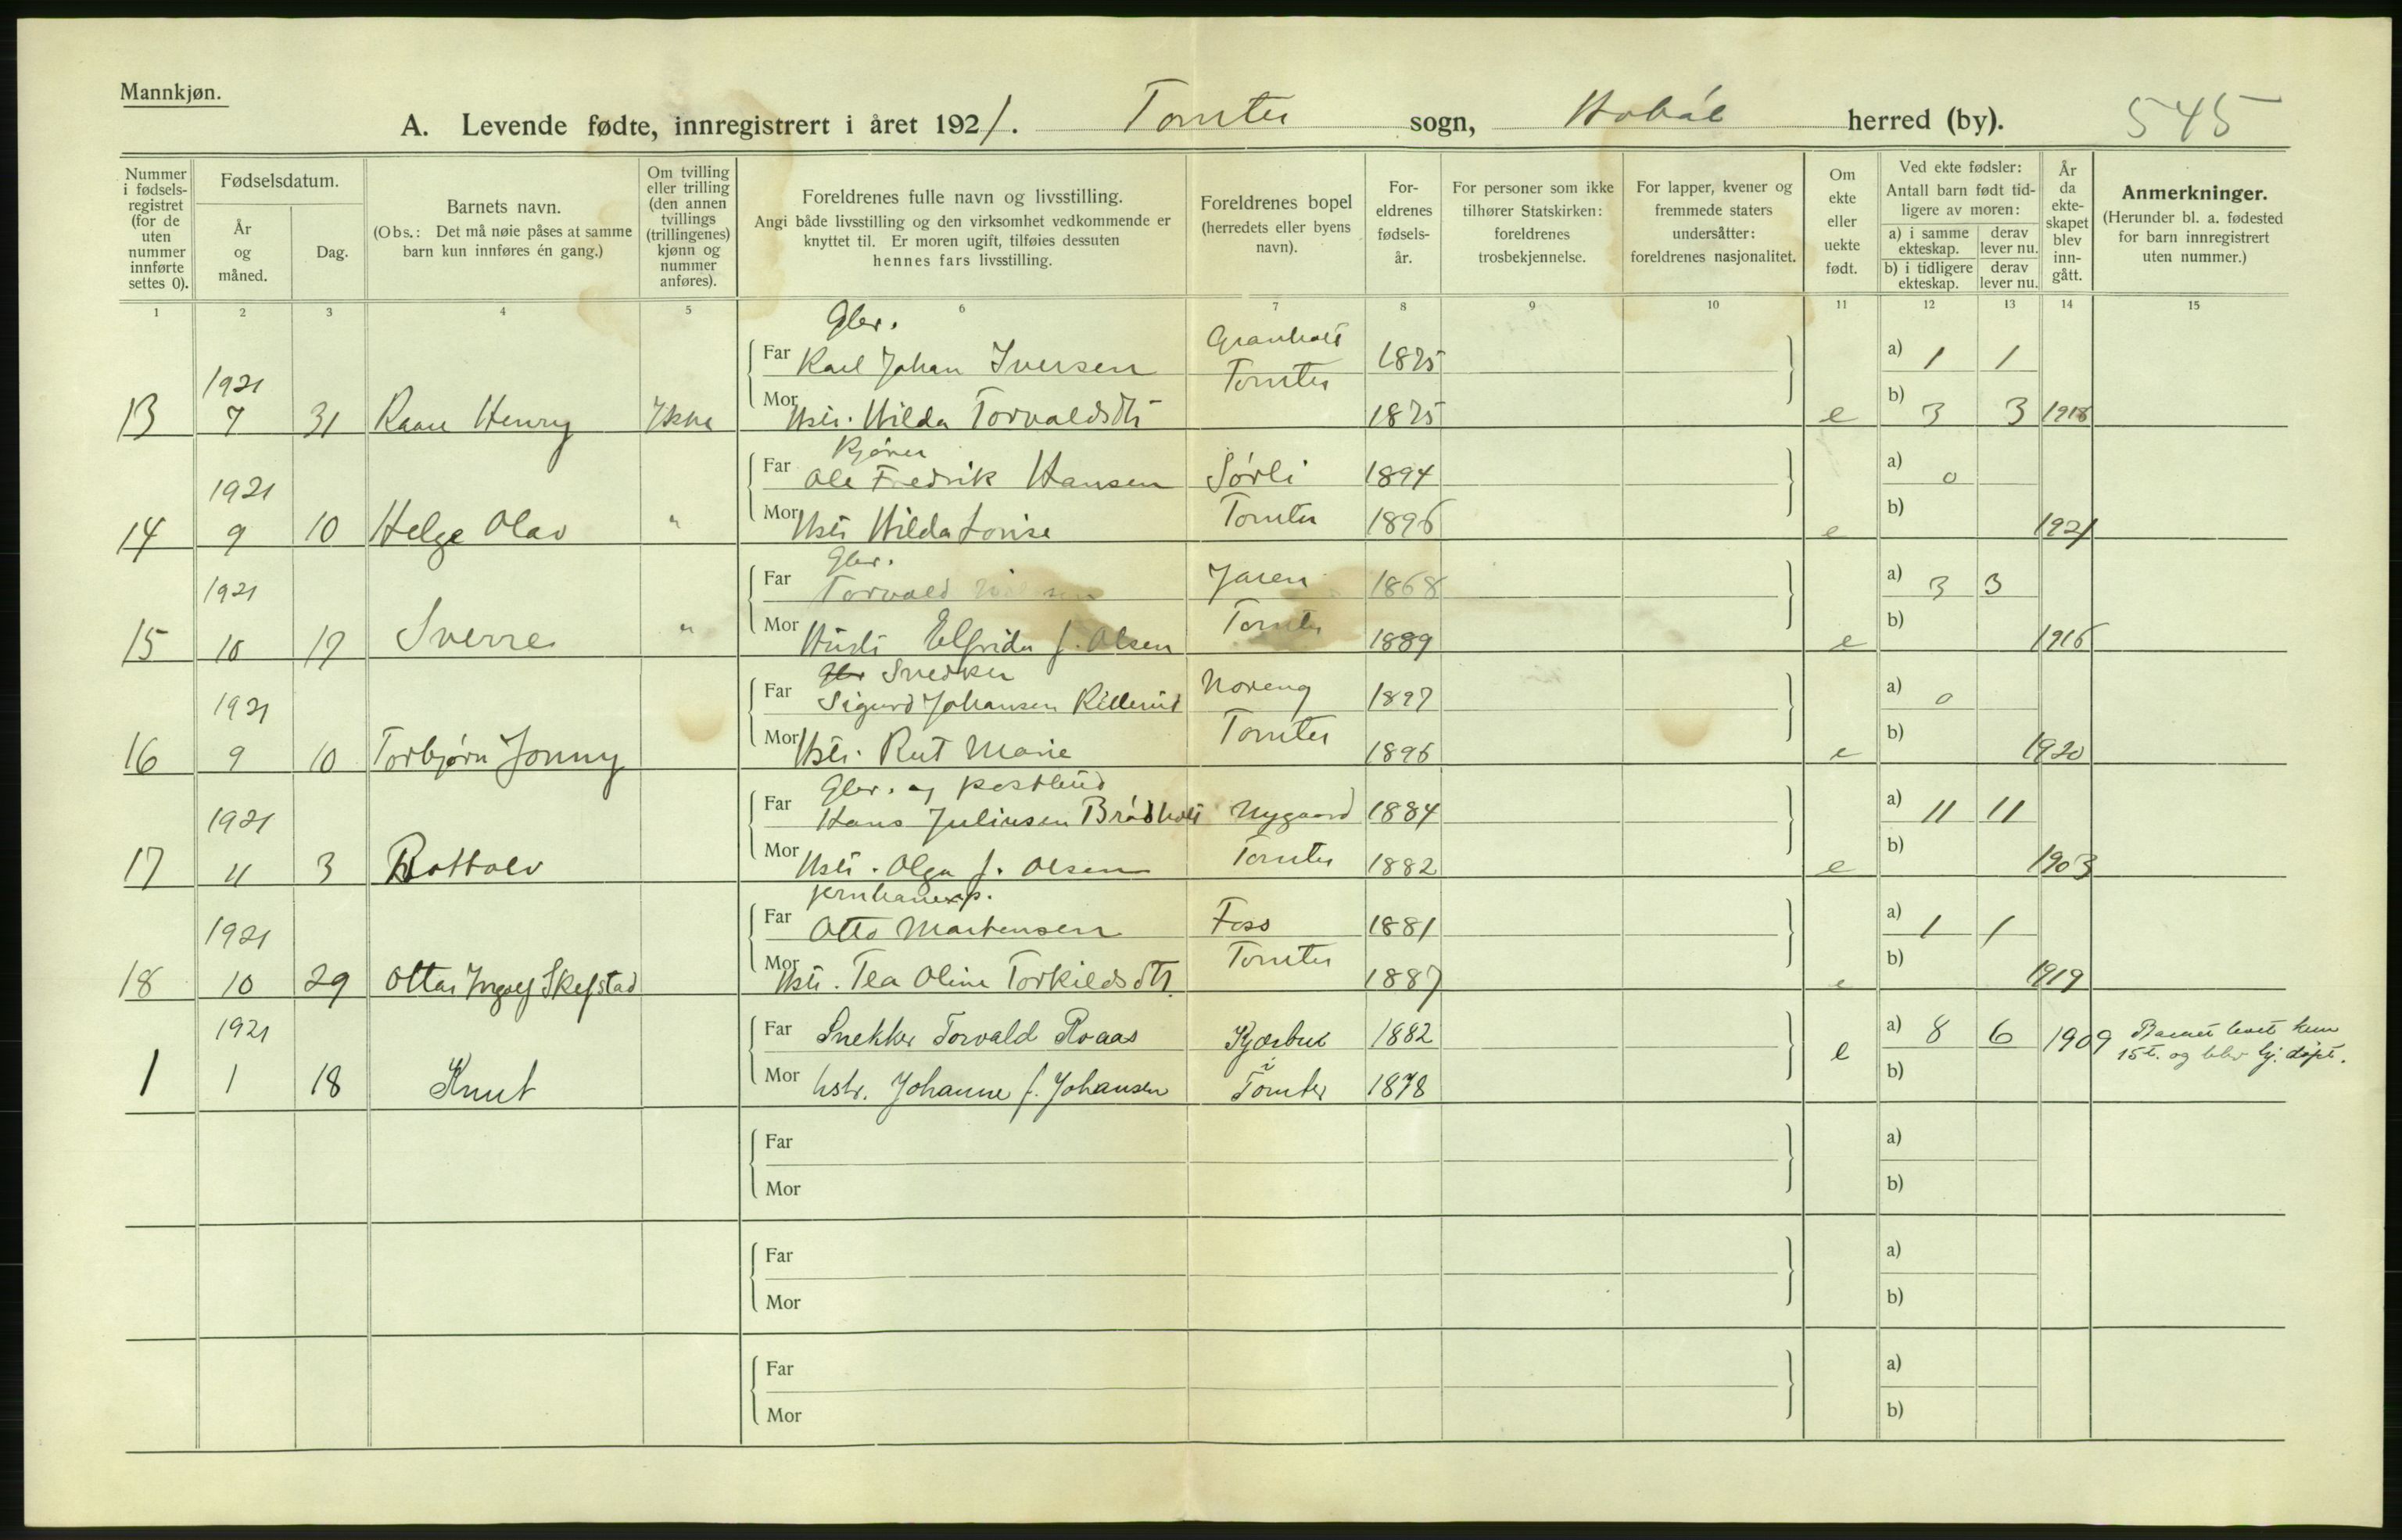 Mannkjøn.
A. Levende fødte, innregistrert i året 1921. Tomter sogn, Hobøl herred (by). 545
Nummer i fødsels-registret (for de uten nummer innførte settes 0).
Fødselsdatum.
År og måned.
Dag.
Barnets navn.
(Obs.: Det må nøie påses at samme barn kun innføres én gang.)
Om tvilling eller trilling (den annen tvillings (trillingenes) kjønn og nummer anføres).
Foreldrenes fulle navn og livsstilling.
Angi både livsstilling og den virksomhet vedkommende er knyttet til. Er moren ugift, tilføies dessuten hennes fars livsstilling.
Foreldrenes bopel (herredets eller byens navn).
For-eldrenes fødsels-år.
For personer som ikke tilhører Statskirken: foreldrenes trosbekjennelse.
For lapper, kvener og fremmede staters undersåtter: foreldrenes nasjonalitet.
Om ekte eller uekte født.
Ved ekte fødsler:
Antall barn født tid-ligere av moren:
a) i samme ekteskap. derav lever nu.
b) i tidligere ekteskap. derav lever nu.
År da ekte-skapet blev inn-gått.
Anmerkninger.
(Herunder bl. a. fødested for barn innregistrert uten nummer.)
1 2 3 4 5 6 7 8 9 10 11 12 13 14 15
Gbr.
Far Karl Johan Iversen Granholt 1875 a) 1 1
1921 Tomter
13 7 31 Kaare Henry Ikke Mor Hstr. Hilda Torvaldsdtr 1875 e b) 3 3 1918
Kjører
Far Ole Fredrik Hansen Sørli 1894 a) 0
1921
14 9 10 Helge Olav " Mor Hstr Hilda Lovise Tomter 1896 e b) 1921
Gbr.
Far Torvald Jaren 1868 a) 3 3
1921
15 10 17 Sverre " Mor Hustr Elfrida f. Olsen Tomter 1889 e b) 1916
Gbr Snedker
Far Sigurd Johansen Killerud Noreng 1897 a) 0
1921
16 9 10 Torbjørn Jonny Mor Hstr. Rut Marie Tomter 1896 e b) 1920
Gbr. og postbud
Far Hans Juliusen Brådholt Nygaard 1884 a) 11 11
1921
17 11 3 Rottolv Mor Hstr. Olga f. Olsen Tomter 1882 e b) 1903
jernbaneexp.
Far Otto Martensen Foss 1881 a) 1 1
1921
18 10 29 Ottar Ingolf Skefstad Mor Hstr. Tea Oline Torkildsdtr. Tomter 1887 e b) 1919
1921 Far Snekker Torvald Raaas Kjærbue 1882 a) 8 6 1909 Barnet levet kun
15 t. og blev hj. døpt.
1 1 18 Knut Mor hstr. Johanne f. Johansen i Tomter 1878 e b)
Far a)
Mor b)
Far a)
Mor b)
Far a)
Mor b)